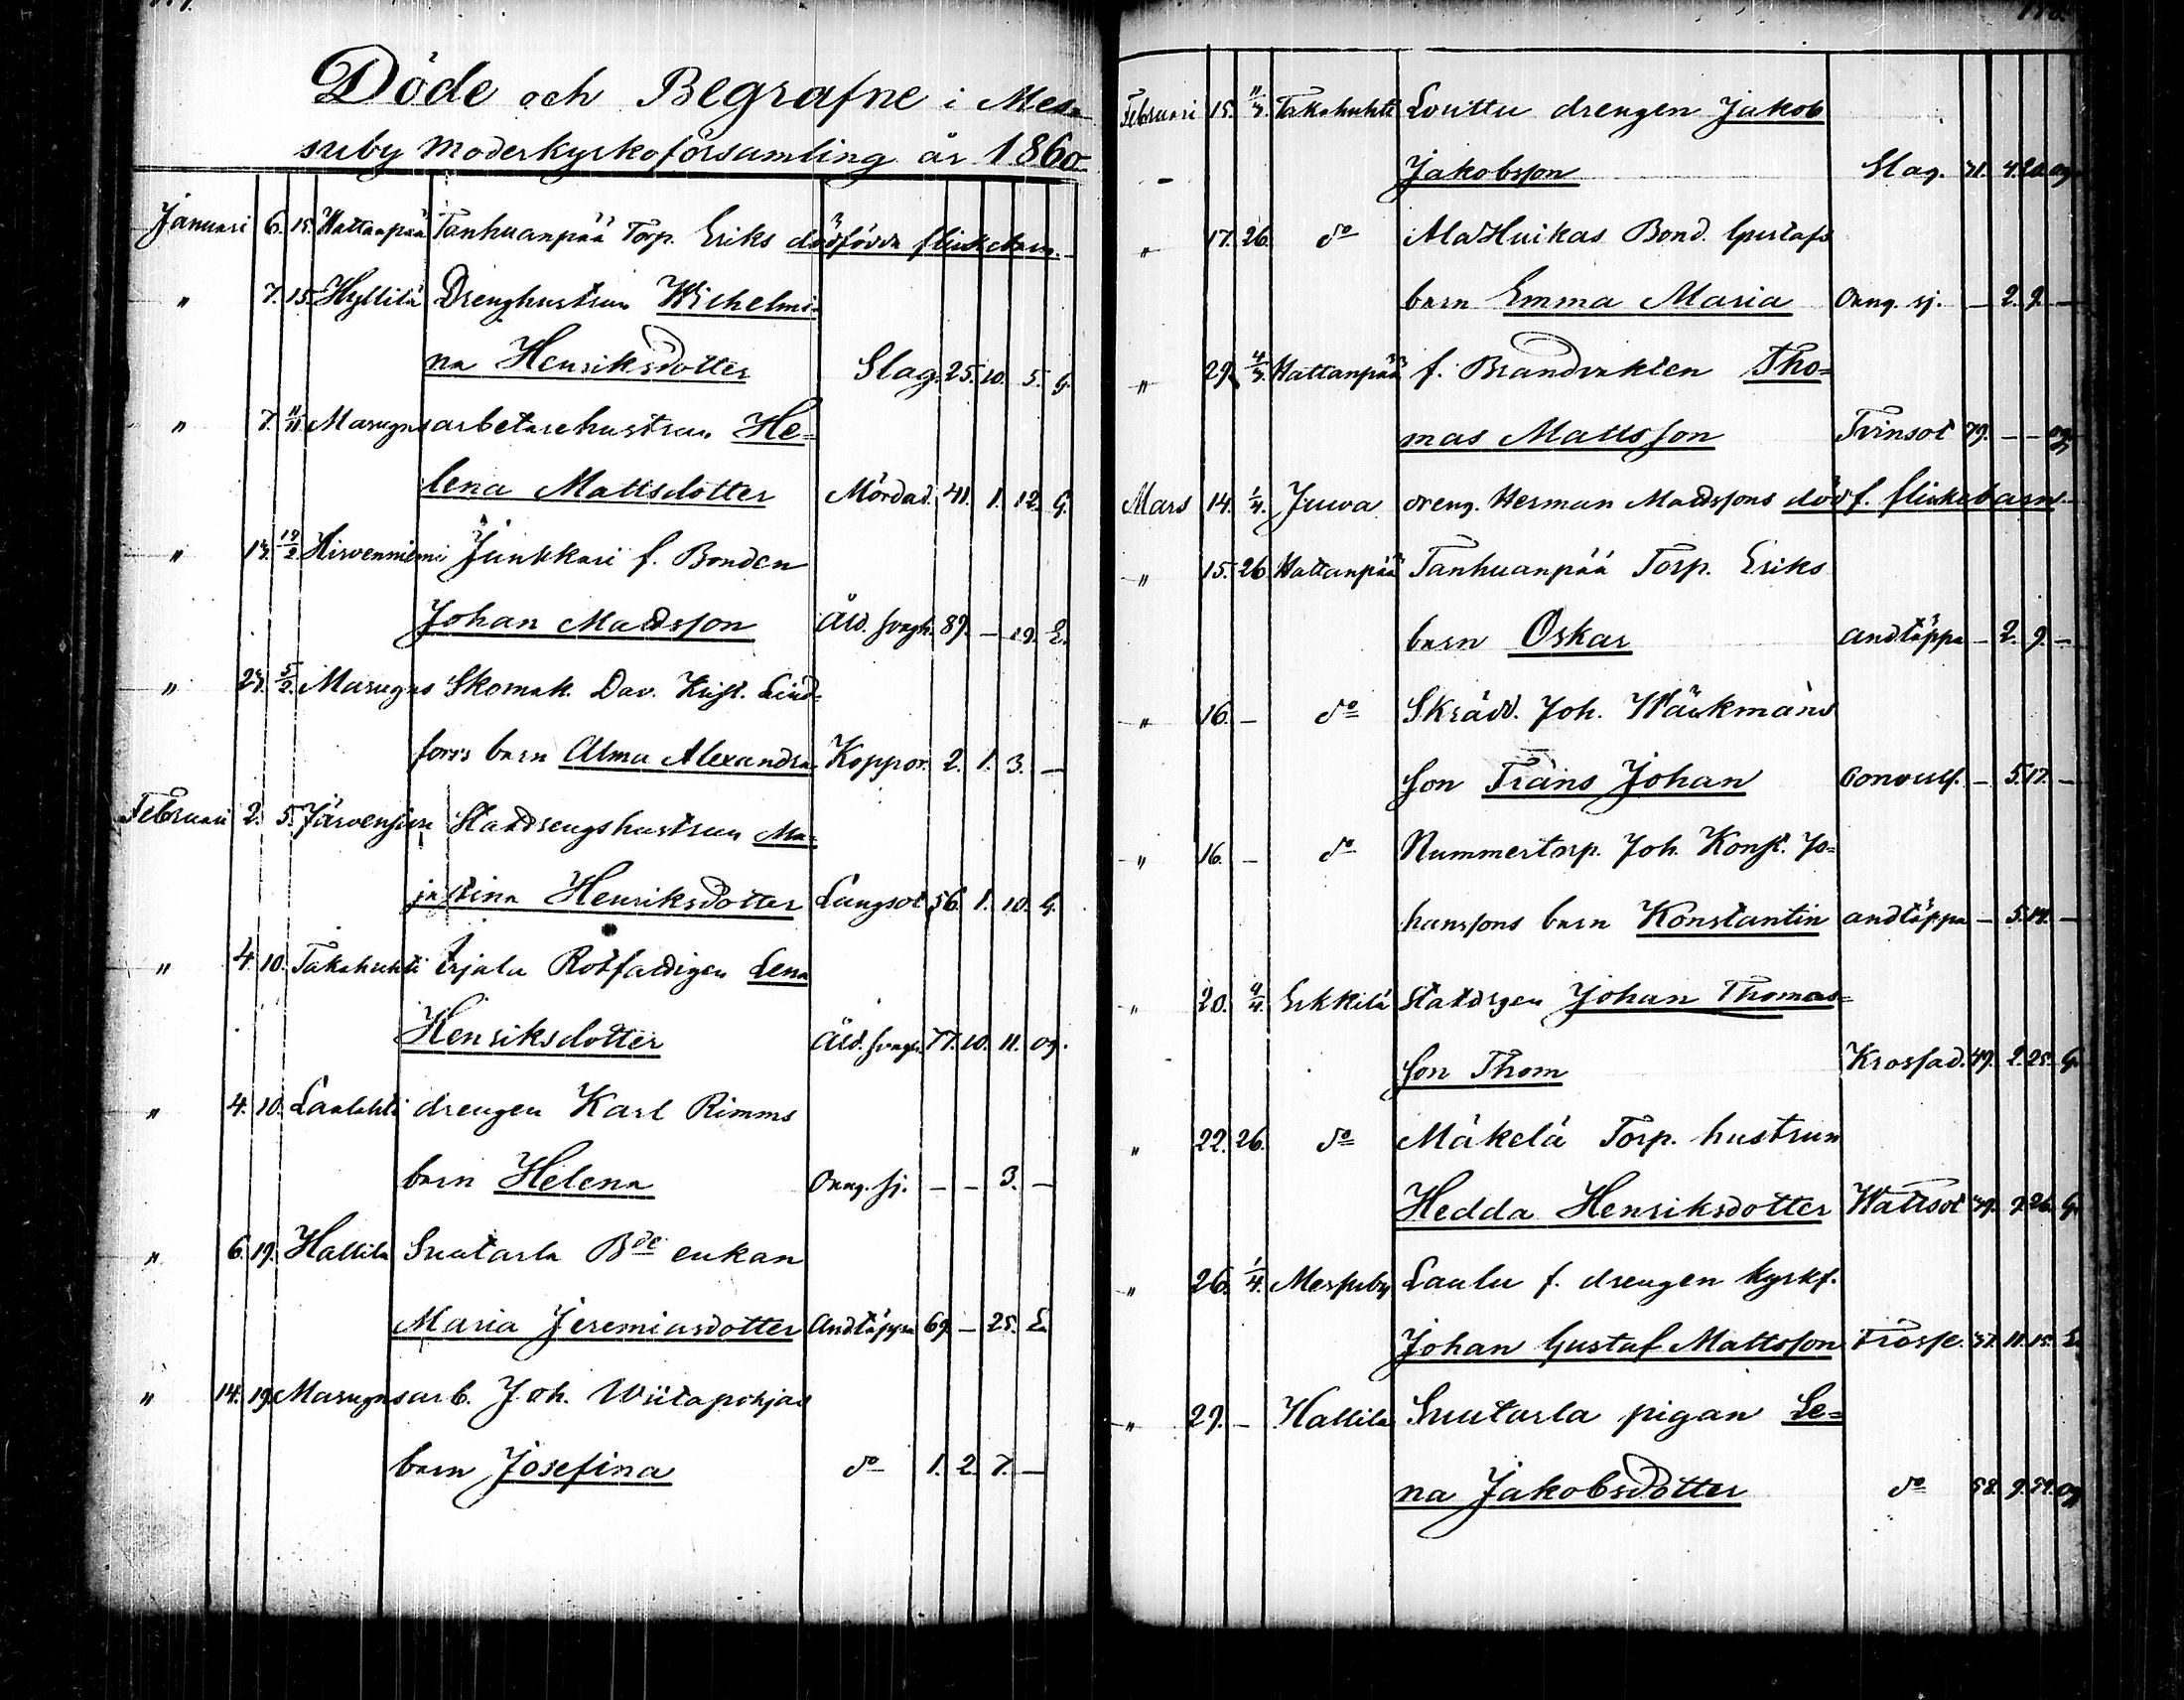 Döde och Begrafne i Mes-
suby Moderkyrkoförsamling år 1860
Januari 6. 15. Hattanpää Tanhuanpää Torp. Eriks dödfödda flickebarn.
" 7. 15. Hyllilä Drenghustrun Wilhelmi-
na Henriksdotter Slag. 25. 10. 5. G.
" 7. 11/11 Masugnsarbetarehustrun He=
lena Mattsdotter Mördad. 41. 1. 12. G.
" 13. 12/2 Hirvenniemi Junkkari f. Bonden
Johan Mattsson Åld. svagh. 89. — 19. E.
" 23. 5/2. Masugns Skomak. Dav. Krist. Lind-
fors barn Alma Alexandra Koppor. 2. 1. 3. —
Februari 2. 5. Järvensivu Statdrengshustrun Ma-
jastina Henriksdotter Lungsot 56. 1. 10. G.
" 4. 10. Takahuhti Erjala Rotfattigen Lena
Henriksdotter Åld. svagh. 77. 10. 11. og.
" 4. 10. Laalahti drengen Karl Rimms
barn Helena Onäg. sj. — — 3. —
" 6. 19. Hallila Suutarla Bde enkan
Maria Jeremiasdotter Andtäppa 69. — 25. En
" 14. 19. Masugnsarb. Joh. Wiitapohjas
barn Josefina do 1. 2. 7. —
Februari 15. 11/3. Takahuhti Louttu drengen Jakob
Jakobsson Slag. 71. 4. 20. og
" 17. 26. do AlaHuikas Bond. Gustafs
barn Emma Maria Onäg. sj. — 2. 9. —
" 29. 4/3. Hattanpää f. Brandvakten Tho=
mas Mattsson Tvinsot 79. — — og.
Mars 14. 1/4. Juwa dreng. Herman Mattssons dödf. flickebarn.
" 15. 26 Hattanpää Tanhuanpää Torp. Eriks
barn Oskar andtäppa — 2. 9. —
" 16. — do Skrädd. Joh. Wäckmans
son Frans Johan Convuls. — 5. 17. —
" 16. — do Nummertorp. Joh. Konst. Jo=
hanssons barn Konstantin andtäppa — 5. 14. —
" 20. 4/4. Erkkilä Statdrgen Johan Thomas=
son Thom Krossad. 49. 2. 25. G.
" 22. 26. do Mäkelä Torp. hustrun
Hedda Henriksdotter Wattsot 39. 9. 26. G.
" 26. 1/4. Messuby Laulu f. drengen kyrkf.
Johan Gustaf Mattsson Frossf. 37. 11. 15. E.
" 29. — Hallila Suutarla pigan Le=
na Jakobsdotter do 58. 9. og